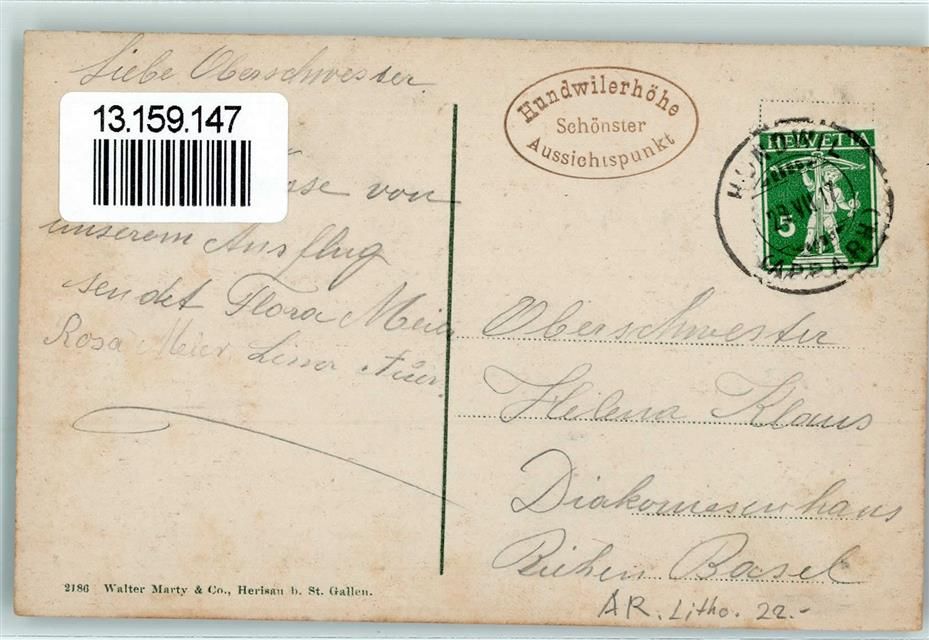 Liebe Oberschwester.
13.159.147
von
unserem Ausflug
sendet Flora Meier
Rosa Meier
Hundwilerhöhe
Schönster
Aussichtspunkt
HELVETIA
5
HUNDWIL
VII. 17
(APP. A. RH.)
Oberschwester
Helena Klaus
Diakonissenhaus
Riehen Basel
AR. Litho. 22.-
2186 Walter Marty & Co., Herisau b. St. Gallen.